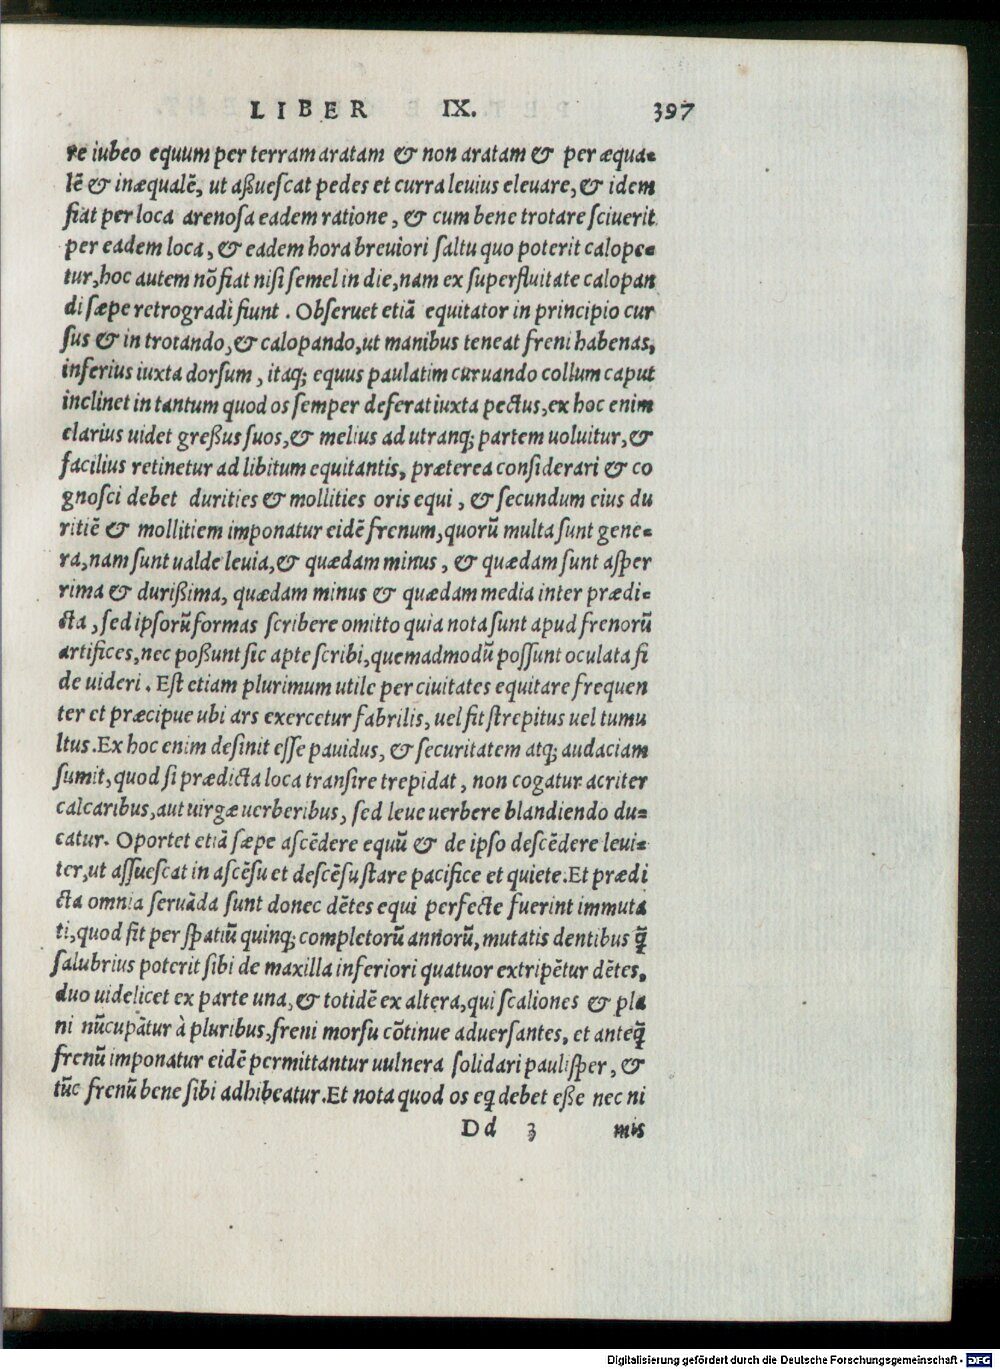 LIBER IX. 397
re iubeo equum per terram aratam & non aratam & per æqua-
lē & inæqualē, ut aßuescat pedes et curra leuius eleuare, & idem
fiat per loca arenosa eadem ratione, & cum bene trotare sciuerit
per eadem loca, & eadem hora breuiori saltu quo poterit calope-
tur, hoc autem nō fiat nisi semel in die, nam ex superfluitate calopan
di sæpe retrogradi fiunt. Obseruet etiā equitator in principio cur
sus & in trotando, & calopando, ut manibus teneat freni habenas,
inferius iuxta dorsum, itaq; equus paulatim curuando collum caput
inclinet in tantum quod os semper deferat iuxta pectus, ex hoc enim
clarius uidet greßus suos, & melius ad utranq; partem uoluitur, &
facilius retinetur ad libitum equitantis, præterea considerari & co
gnosci debet durities & mollities oris equi, & secundum eius du
ritiē & mollitiem imponatur eidē frenum, quorū multa sunt gene-
ra, nam sunt ualde leuia, & quædam minus, & quædam sunt asper
rima & durißima, quædam minus & quædam media inter prædi-
cta, sed ipsorū formas scribere omitto quia nota sunt apud frenorū
artifices, nec poßunt sic apte scribi, quemadmodū possunt oculata fi
de uideri. Est etiam plurimum utile per ciuitates equitare frequen
ter et præcipue ubi ars exercetur fabrilis, uel fit strepitus uel tumu
ltus. Ex hoc enim desinit esse pauidus, & securitatem atq; audaciam
sumit, quod si prædicta loca transire trepidat, non cogatur acriter
calcaribus, aut uirgæ uerberibus, sed leue uerbere blandiendo du-
catur. Oportet etiā sæpe ascēdere equū & de ipso descēdere leui-
ter, ut assuescat in ascēsu et descēsu stare pacifice et quiete. Et prædi
cta omnia seruāda sunt donec dētes equi perfecte fuerint immuta
ti, quod fit per spatiū quinq; completorū annorū, mutatis dentibus q̄
salubrius poterit sibi de maxilla inferiori quatuor extripētur dētes,
duo uidelicet ex parte una, & totidē ex altera, qui scaliones & pla
ni nūcupātur à pluribus, freni morsu cōtinue aduersantes, et anteq̄
frenū imponatur eidē permittantur uulnera solidari paulisper, &
tūc frenū bene sibi adhibeatur. Et nota quod os eq̄ debet eße nec ni
Dd 3 mis
Digitalisierung gefördert durch die Deutsche Forschungsgemeinschaft - DFG